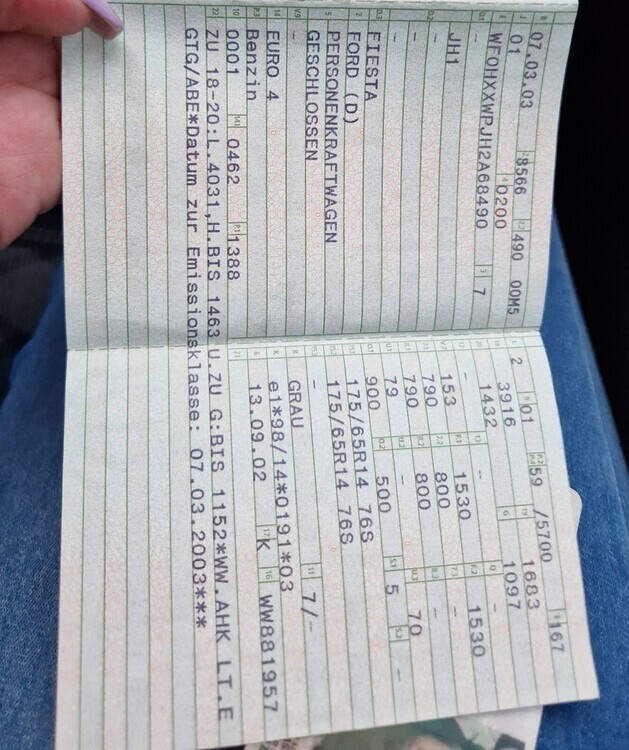 07.03.03 8566 490 00M5
01 0200
WF0HXXWPJH2A68490 7
-
JH1
-
-
-
FIESTA
FORD (D)
PERSONENKRAFTWAGEN
GESCHLOSSEN
-
EURO 4
Benzin
0001 0462 1388
2 01 59 /5700 167
3916 1683
1432 1097
- - -
153 1530 1530
790 800 -
790 800 -
79 - 70
900 500 5 -
175/65R14 76S
175/65R14 76S
- 7/-
GRAU
e1*98/14*0191*03
13.09.02 K WW881957
ZU 18-20:L.4031,H.BIS 1463 U.ZU G:BIS 1152*WW.AHK LT.E
GTG/ABE*Datum zur Emissionsklasse: 07.03.2003***